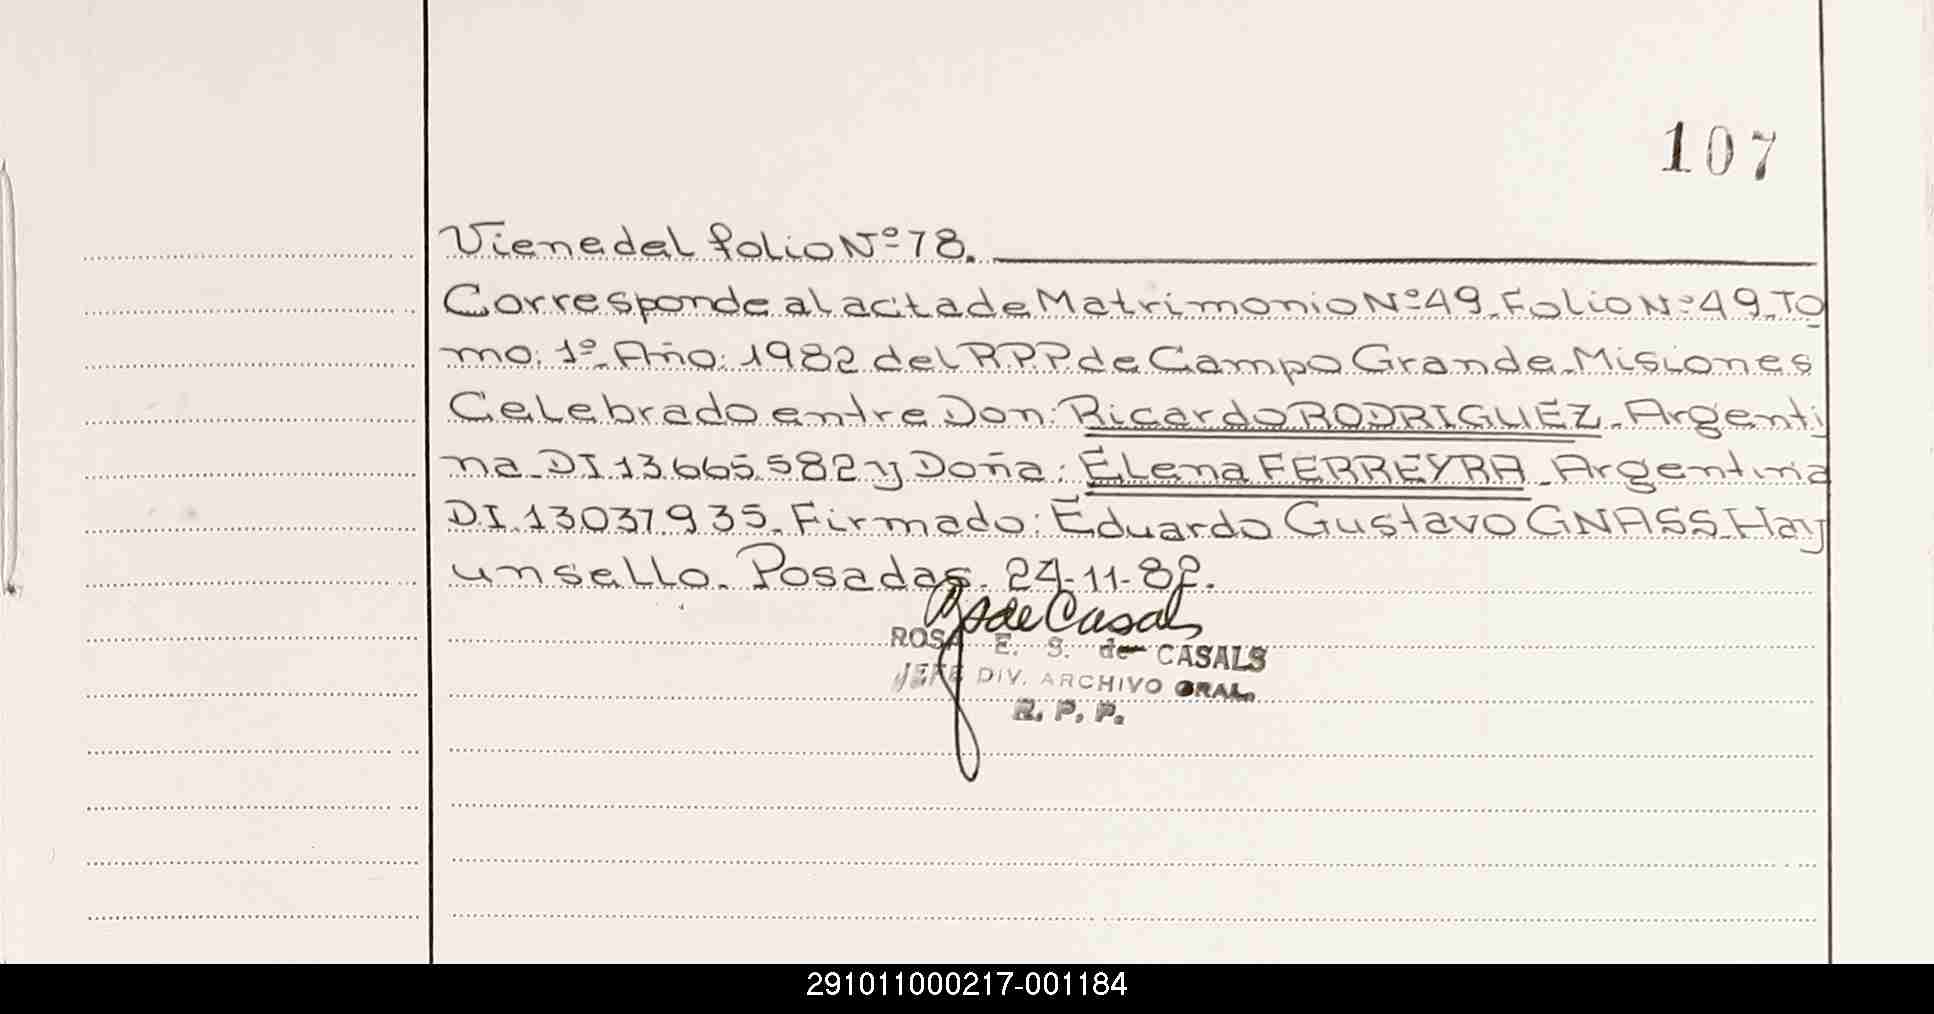 107
Viene del folio Nº 78.
Corresponde al acta de Matrimonio Nº 49. Folio Nº 49. To
mo. 1º. Año: 1982 del R.P.P. de Campo Grande. Misiones
Celebrado entre Don: Ricardo RODRIGUEZ. Argenti
na. DI 13.665.582 y Doña: Elena FERREYRA. Argentina
D.I. 13037935. Firmado: Eduardo Gustavo GNASS. Hay
un sello. Posadas. 24-11-82.
de Casals
ROSA E. S. de CASALS
JEFE DIV. ARCHIVO GRAL.
R. P. P.
291011000217-001184